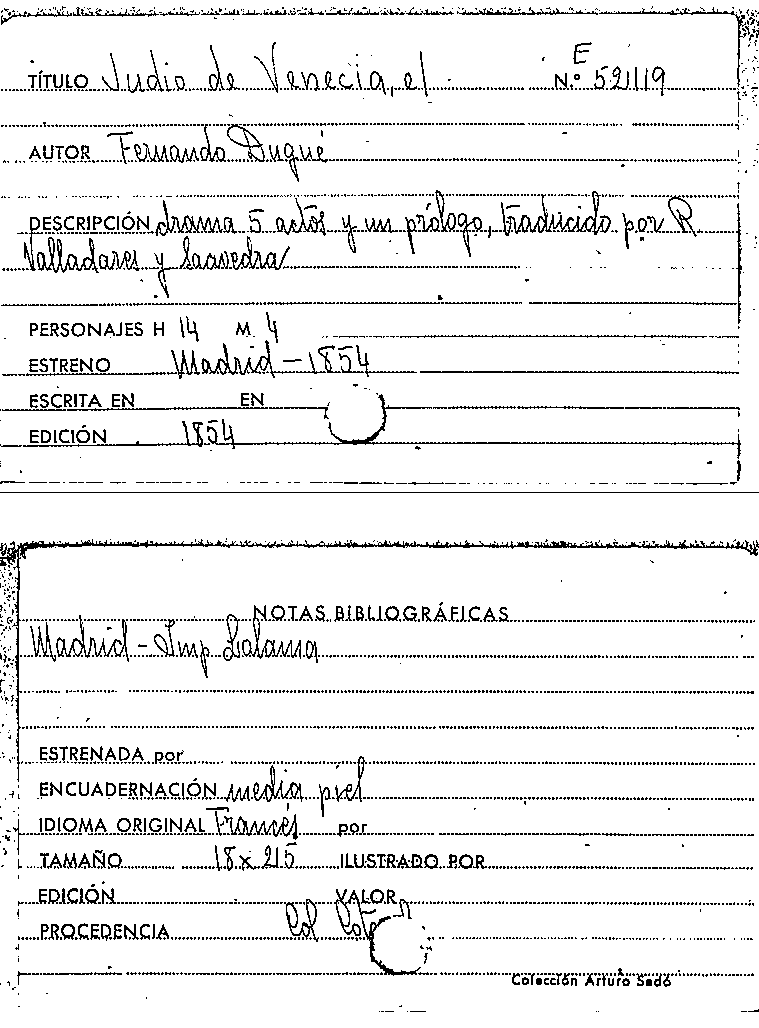 TÍTULO Judio de Venecia, el
E
N.º 521119
AUTOR Fernando Dugué
DESCRIPCIÓN drama 5 actos y un prólogo, traducido por R.
Valladares y Saavedra
PERSONAJES H 14 M. 4
ESTRENO Madrid - 1854
ESCRITA EN EN
EDICIÓN 1854
NOTAS BIBLIOGRÁFICAS
Madrid - Imp Lalama
ESTRENADA por
ENCUADERNACIÓN media piel
IDIOMA ORIGINAL Francés por
TAMAÑO 18 x 215 ILUSTRADO POR
EDICIÓN VALOR
PROCEDENCIA Col
Colección Arturo Sedó